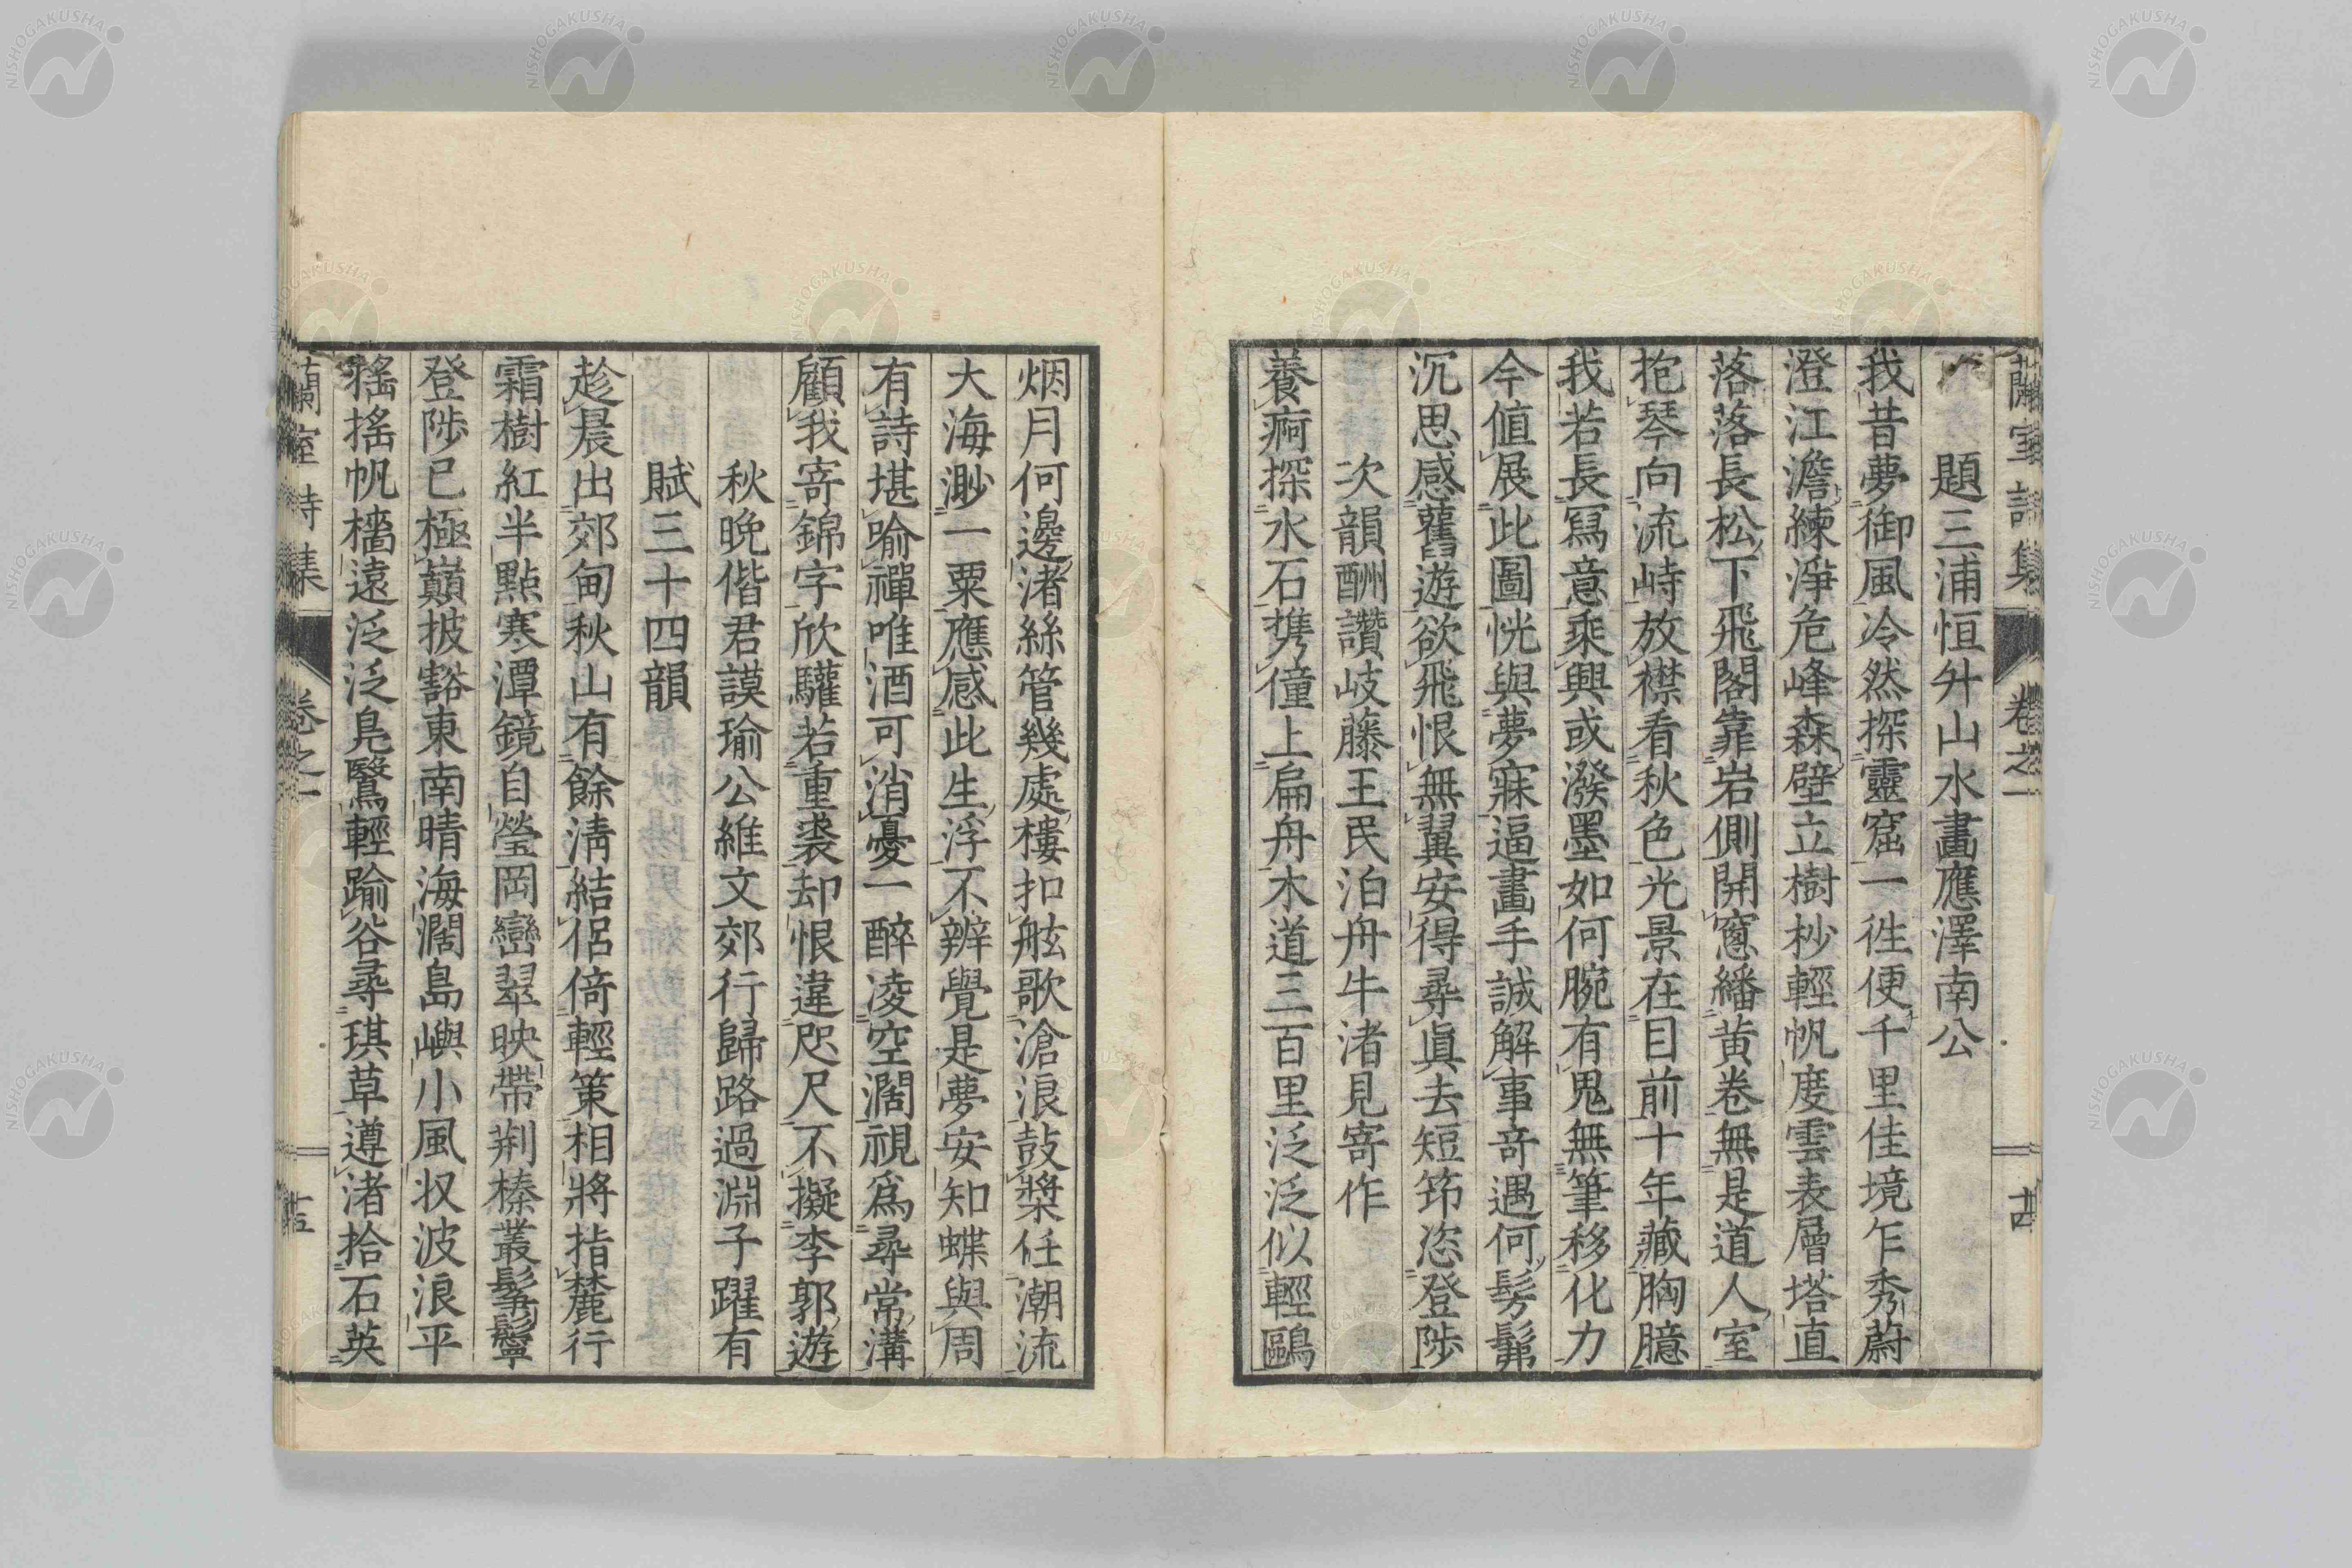 蘭室詩集 卷之一 廿四
題三浦恒升山水畫應澤南公
我昔夢御風冷然探靈窟一徃便千里佳境乍秀蔚
澄江澹練淨危峰森壁立樹杪輕帆度雲表層塔直
落落長松下飛閣靠岩側開窻繙黄卷無是道人室
抱琴向流峙放襟看秋色光景在目前十年藏胸臆
我若長冩意乘興或潑墨如何腕有鬼無筆移化力
今値展此圖恍與夢寐逼畫手誠解事竒遇何髣髴
沉思感舊遊欲飛恨無翼安得尋眞去短筇恣登陟
次韻酬讚岐藤王民泊舟牛渚見寄作
養痾探水石携僮上扁舟木道三百里泛泛似輕鷗
烟月何邊渚絲管幾處樓扣舷歌滄浪鼓槳任潮流
大海渺一粟應感此生浮不辨覺是夢安知蝶與周
有詩堪喻禪唯酒可消憂一醉凌空濶視爲尋常溝
顧我寄錦字欣驩若重裘却恨違咫尺不擬李郭遊
秋晩偕君謨瑜公維文郊行歸路過淵子躍有
賦三十四韻
趁晨出郊甸秋山有餘淸結侶倚輕策相將指麓行
霜樹紅半點寒潭鏡自瑩岡巒翠映帶荆榛叢鬇鬡
登陟已極巓披豁東南晴海濶島嶼小風収波浪平
猺搖帆檣遠泛泛鳧鷖輕踰谷尋琪草遵渚拾石英
蘭室詩集 卷之一 廿五
NISHOGAKUSHA